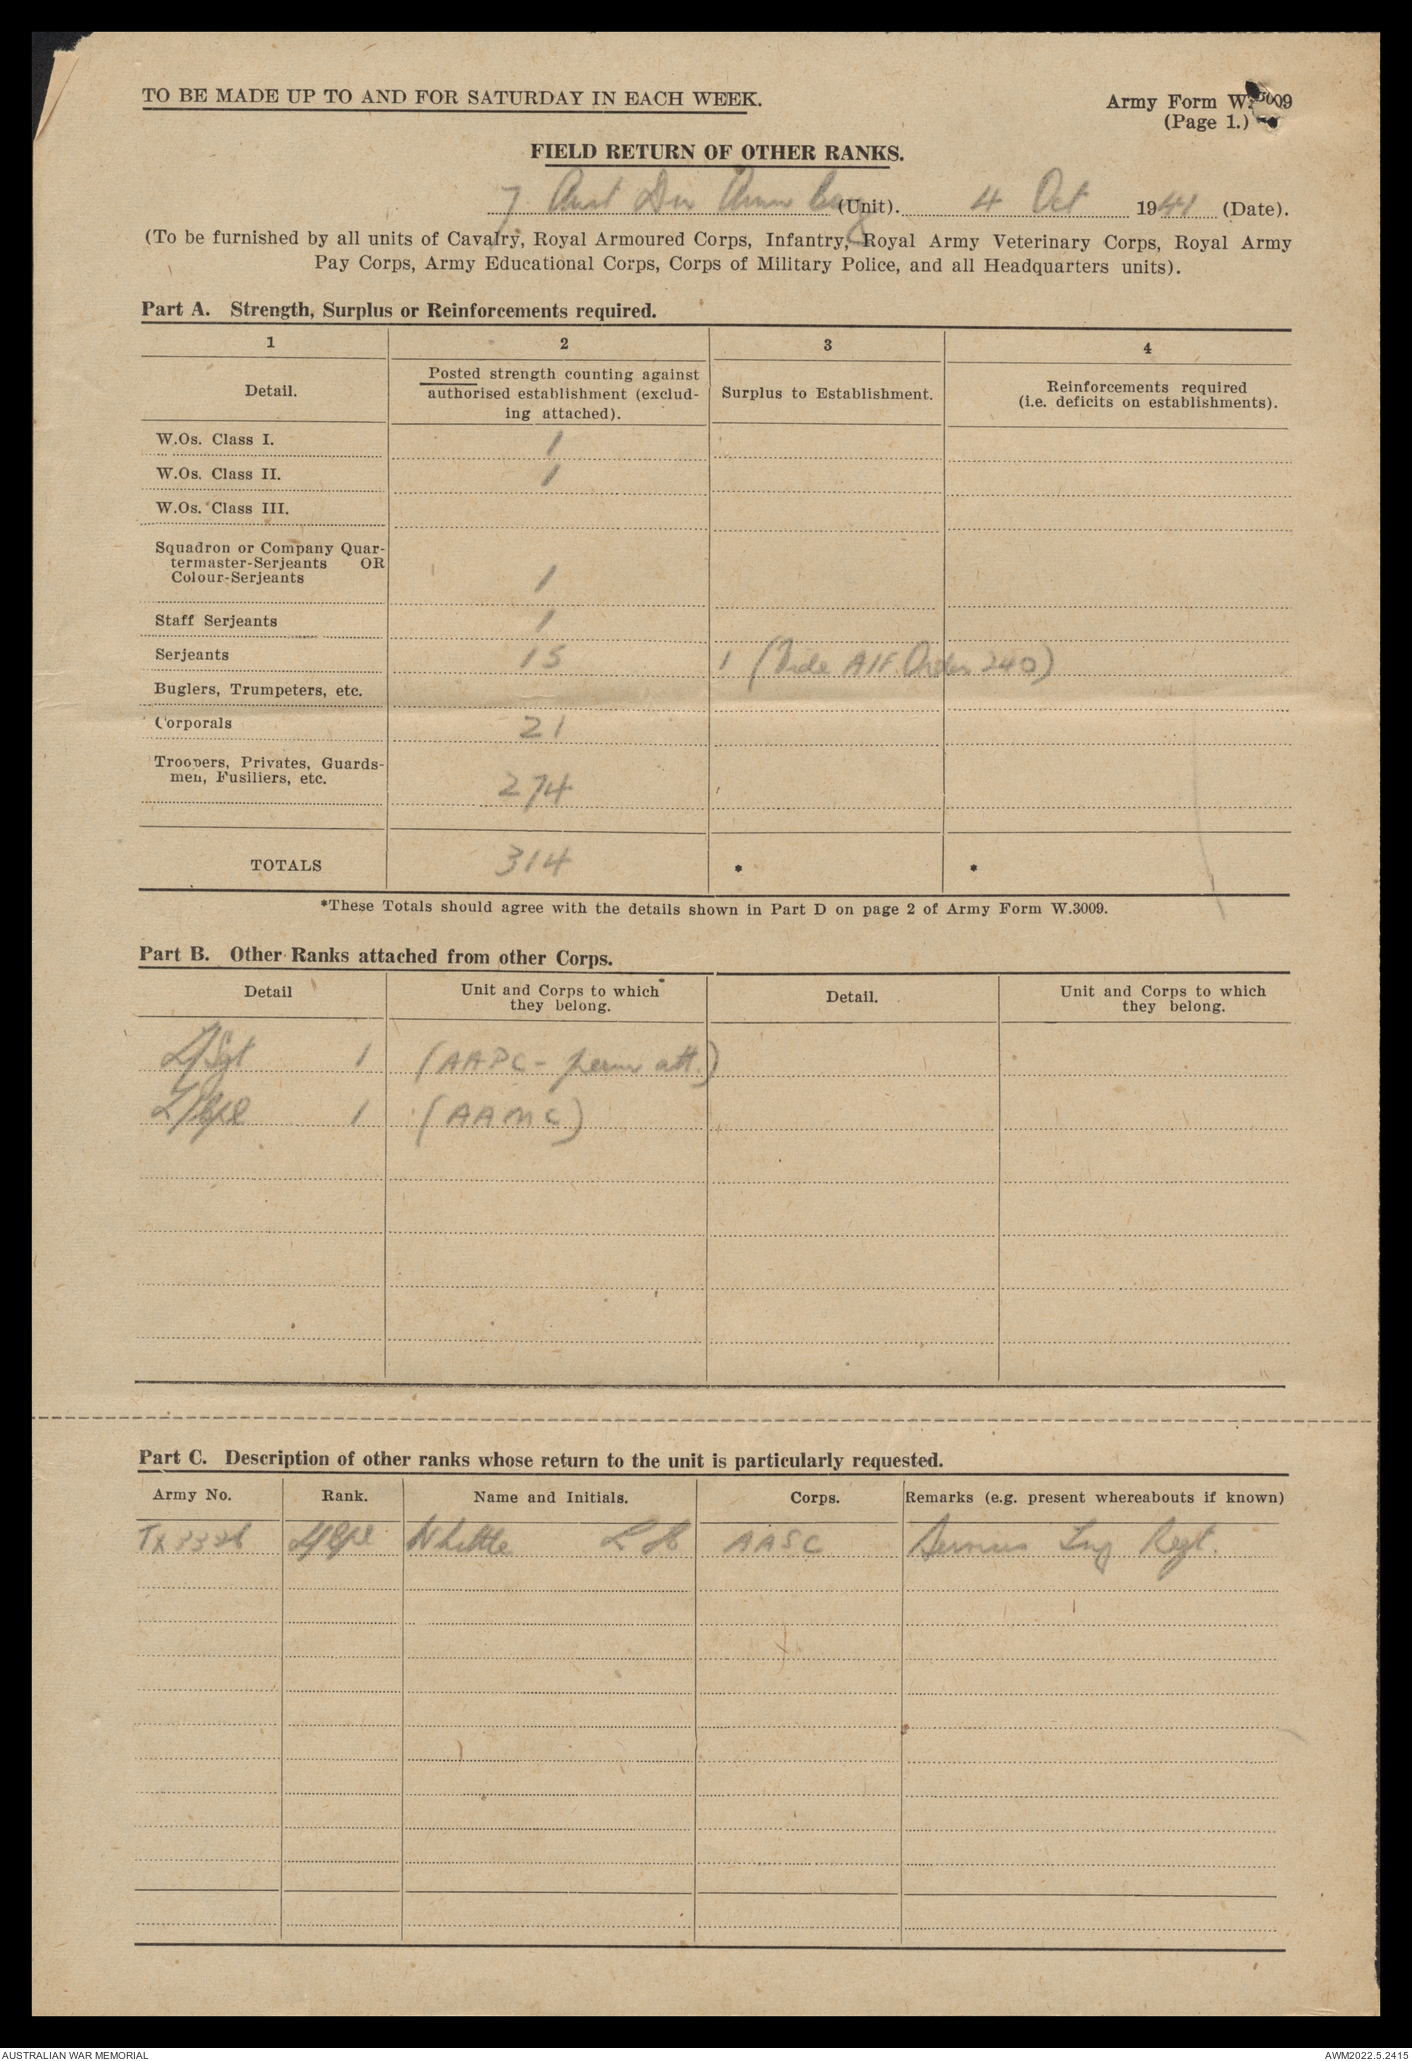 TO BE MADE UP TO AND FOR SATURDAY IN EACH WEEK.
Army Form W.3009
(Page 1.)
FIELD RETURN OF OTHER RANKS.
7 Aust Div Amm Coy (Unit). 4 Oct 1941 (Date).
(To be furnished by all units of Cavalry, Royal Armoured Corps, Infantry, Royal Army Veterinary Corps, Royal Army
Pay Corps, Army Educational Corps, Corps of Military Police, and all Headquarters units).
Part A. Strength, Surplus or Reinforcements required.
1 2 3 4
Detail.
Posted strength counting against
authorised establishment (exclud-
ing attached).
Surplus to Establishment.
Reinforcements required
(i.e. deficits on establishments).
W.Os. Class I. 1
W.Os. Class II. 1
W.Os. Class III.
Squadron or Company Quar-
termaster-Serjeants OR
Colour-Serjeants 1
Staff Serjeants 1
Serjeants 15 1 (Vide AIF Order 240)
Buglers, Trumpeters, etc.
Corporals 21
Troopers, Privates, Guards-
men, Fusiliers, etc. 274
TOTALS 314 * *
*These Totals should agree with the details shown in Part D on page 2 of Army Form W.3009.
Part B. Other Ranks attached from other Corps.
Detail
Unit and Corps to which
they belong.
Detail.
Unit and Corps to which
they belong.
L/Sgt 1 (AAPC - perm att.)
L/Cpl 1 (AAMC)
Part C. Description of other ranks whose return to the unit is particularly requested.
Army No. Rank. Name and Initials. Corps. Remarks (e.g. present whereabouts if known)
L/Cpl Whittle AASC Trg Regt.
AUSTRALIAN WAR MEMORIAL
AWM2022.5.2415